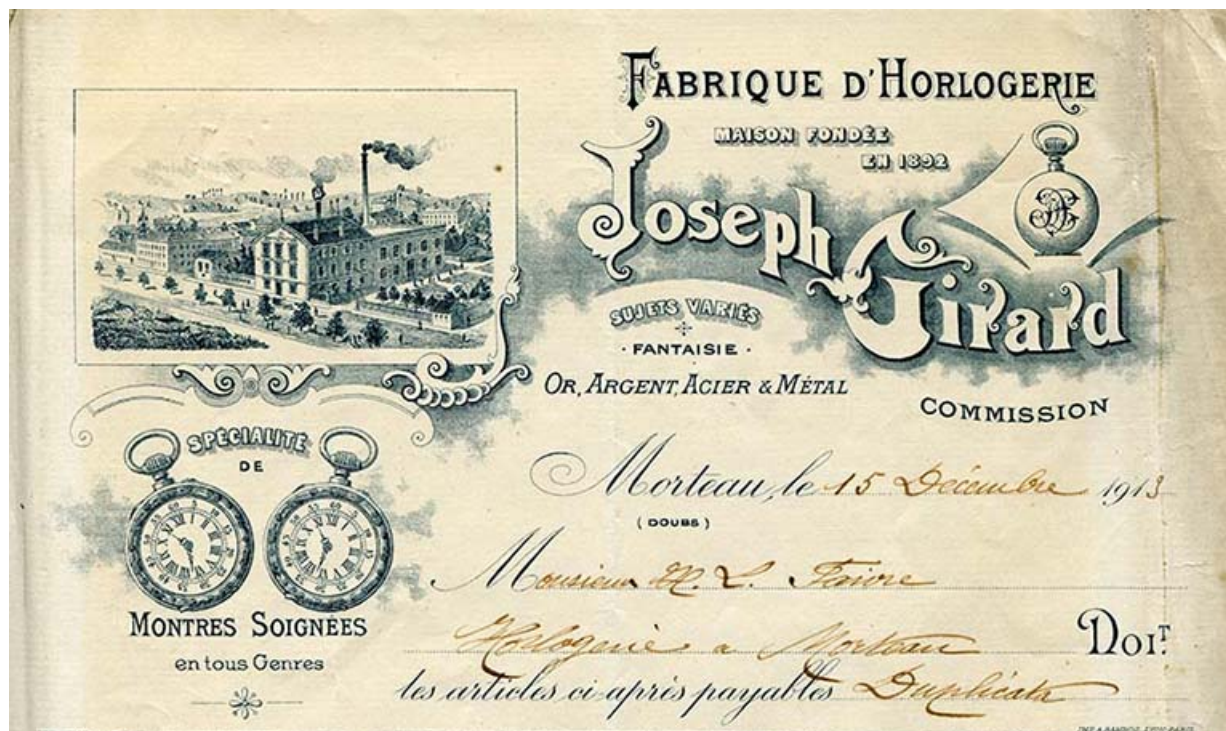 FABRIQUE D'HORLOGERIE
MAISON FONDÉE
EN 1892
Joseph Girard
SUJETS VARIÉS
· FANTAISIE ·
OR, ARGENT, ACIER & MÉTAL
COMMISSION
SPÉCIALITÉ
DE
MONTRES SOIGNÉES
en tous Genres
Morteau, le 15 Décembre 1913
(DOUBS)
Monsieur H. L. Faivre
Horlogerie a Morteau DOIT
les articles ci-après payables Duplicata